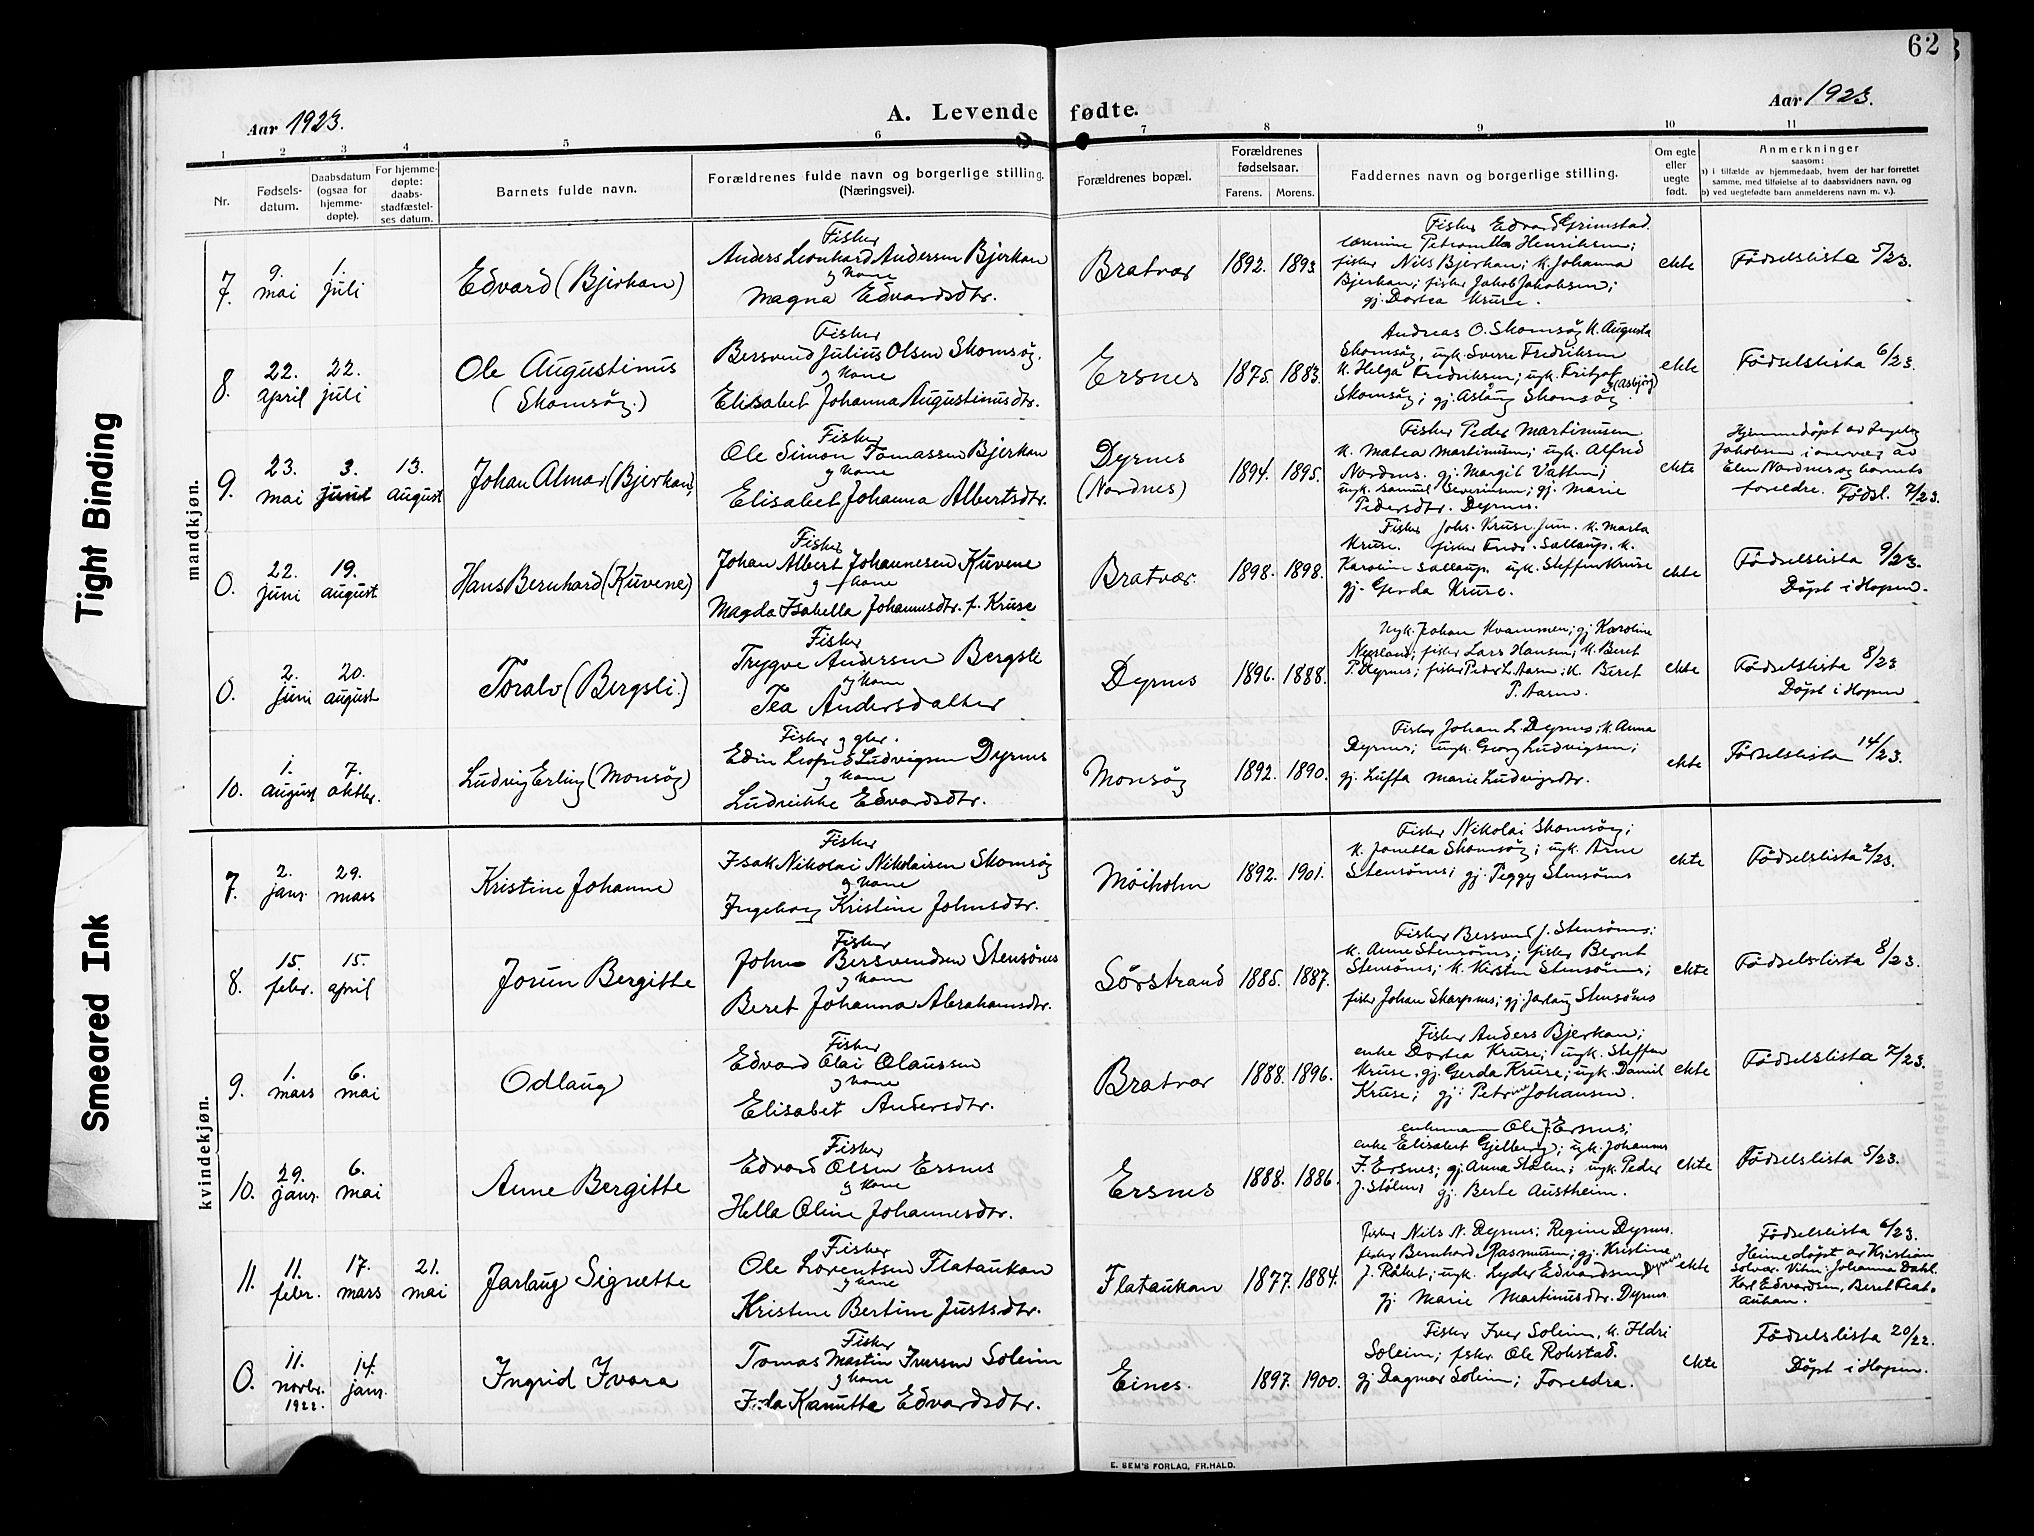 62
Aar 1923.
A. Levende fødte.
Aar 1923.
1 2 3 4 5 6 7 8 9 10 11
Nr.
Fødsels-
datum.
Daabsdatum
(ogsaa for
hjemme-
døpte).
For hjemme-
døpte:
daabs-
stadfæstel-
ses datum.
Barnets fulde navn.
Forældrenes fulde navn og borgerlige stilling.
(Næringsvei).
Forældrenes bopæl.
Forældrenes
fødselsaar.
Farens. Morens.
Faddernes navn og borgerlige stilling.
Om egte
eller
uegte
født.
Anmerkninger
saasom:
a) i tilfælde av hjemmedaab, hvem der har forrettet
samme, med tilføielse af to daabsvidners navn, og
b) ved uegtefødte barn anmelderens navn m. v.).
mandkjøn.
7.
9.
mai
1.
juli
Edvard (Bjerkan)
Fisker
Anders Leonhard Andersen Bjerkan
og kone
Magna Edvardsdtr.
Bratvær
1892. 1893
Fisker Edvard Grimstad
lærerinne Petronella Henriksen;
fisker Nils Bjerkan; k. Johanna
Bjerkan; fisker Jakob Jakobsen;
gj. Dortea Kruse.
ekte
Fødselslista 5/23.
8.
22.
april
22.
juli
Ole Augustinus
(Skomsøg.)
Fisker
Bersvend Julius Olsen Skomsøg.
og kone
Elisabet Johanna Augustinusdtr.
Ersnes
1875. 1883.
Andreas O. Skomsøg k. Augusta
Skomsøg, ugk. Sverre Fredriksen
k. Helga Fredriksen; ugk. Fritjof
(Asbjørg)
Skomsøg; gj. Aslaug Skomsøg
ekte
Fødselslista 6/23.
9.
23.
mai
3.
juni
13.
august
Johan Almar (Bjerkan)
Fisker
Ole Simon Tomassen Bjerkan
og kone
Elisabet Johanna Albertsdtr.
Dyrnes
(Nordnes)
1894. 1895.
Fisker Peder Martinusen
k. Matea Martinusen; ugk. Alfred
Nordnes. gj. Margit Vatten;
ugk. Samuel Severinsen; gj. Marie
Pedersdtr. Dyrnes.
ekte
Hjemmedøpt av Ingeborg
Jakobsen i nærvær av
Elen Nordnes og barnets
foreldre. Fødsl. 7/23.
0.
22.
juni
19.
august
Hans Bernhard (Kuvene)
Fisker
Johan Albert Johannesen Kuvene
og kone
Magda Isabella Johannesdtr. f. Kruse
Bratvær.
1898. 1898.
Fisker Johs. Kruse jun. k. Marta
Kruse. fisker Fredr. Sallaup. k.
Karoline Sallaup. ugk. Steffen Kruse
gj. Gerda Kruse.
ekte
Fødselslista 9/23.
Døpt i Hopen.
0.
2.
juni
20.
august
Toralv (Bergsli.)
Fisker
Trygve Andersen Bergsli
og kone
Tea Andersdatter
Dyrnes
1896. 1888.
Ugk. Johan Kvammen; gj Karoline
Nerland; fisker Lars Hansen; k. Beret
P. Dyrnes; fisker Peder L. Aasen; k. Beret
P. Aasen.
ekte
Fødselslista 8/23
Døpt i Hopen
10.
1.
august
7.
oktbr.
Ludvig Erling (Monsøg)
Fisker og gbr.
Edin Ludvigsen Dyrnes
og kone
Ludvikke Edvardsdtr.
Monsøg
1892. 1890.
Fisker Johan L. Dyrnes; k. Anna
Dyrnes; ugk. Georg Ludvigsen;
gj. Luffa Marie Ludvigsdtr.
ekte
Fødselslista 14/23.
kvindekjøn.
7.
2.
janr.
29.
mars
Kristine Johanne
Fisker
Isak Nikolai Nikolaisen Skomsøg
og kone
Ingeborg Kristine Johnsdtr.
Møiholm
1892. 1901.
Fisker Nikolai Skomsøg;
k. Jonetta Skomsøg; ugk. Arne
Stensønes; gj. Peggy Stensønes
ekte
Fødselslista 2/23.
8.
15.
febr.
15.
april
Jorun Bergitte
Fisker
John Bersvendsen Stensønes
og kone
Beret Johanna Abrahamsdtr.
Sørstrand
1885. 1887.
Fisker Bersvend J. Stensønes;
k. Anne Stensønes; fisker Bernt
Stensønes; k. Kirsten Stensønes;
fisker Johan Skarpnes; gj. Jarlaug Stensønes
ekte
Fødselslista 8/23.
9.
1.
mars
6.
mai
Odlaug
Fisker
Edvard Olai Olaussen
og kone
Elisabet Andersdtr.
Bratvær
1888. 1896.
Fisker Anders Bjerkan;
enke Dortea Kruse; ugk. Steffen
Kruse. gj. Gerda Kruse; ugk. Daniel
Kruse; gj. Petrine Johansen.
ekte
Fødselslista 7/23.
10.
29.
janr.
6.
mai
Anne Bergitte
Fisker
Edvard Olsen Ersnes
og kone
Hella Oline Johannesdtr.
Ersnes
1888. 1886.
enkemann Ole J. Ersnes;
enke Elisabet Gjelberg; ugk. Johannes
J. Ersnes; gj. Anna Stølen; ugk. Peder
J. Stølen; gj. Berte Austheim.
ekte
Fødselslista 5/23.
11.
11.
febr.
17.
mars
21.
mai
Jarlaug Signette
Fisker
Ole Lorentsen Flataukan
og kone
Kristine Bertine Justsdtr.
Flataukan
1877. 1884.
fisker Nils N. Dyrnes; Regine Dyrnes
fisker Bernhard Rasmussen; gj. Kristine
J. Røket; ugk. Lyder Edvardsen Dyrnes
gj Marie Martinusdtr. Dyrnes
ekte
Fødselslista 6/23.
Heimedøpt av Kristian
Solvær. Vitne: Johanna Dahl.
Karl Edvardsen, Beret Flat-
aukan.
0.
11.
novbr.
1922.
14.
janr.
Ingrid Ivara
Fisker
Tomas Martin Iversen Soleim
og kone
Ida Kanutta Edvardsdtr.
Eines.
1897. 1900.
Fisker Iver Soleim, k. Ildri
Soleim; fisker Ole Rokstad.
gj Dagmar Soleim; Foreldra.
ekte
Fødselslista 20/22.
Døpt i Hopen.
E. SEM'S FORLAG, FR.HALD.
Tight Binding
Smeared Ink